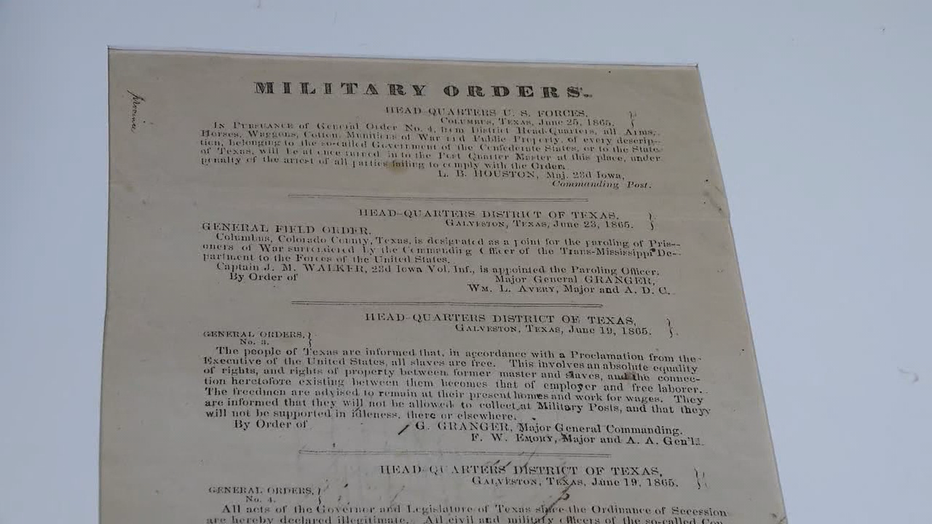 MILITARY ORDERS.
HEAD-QUARTERS U. S. FORCES, }
Columbus, Texas, June 25, 1865. }
In Pursuance of General Order No. 4, from District Head-Quarters, all Arms,
Horses, Waggons, Cotton, Munitions of War and Public Property, of every descrip-
tion, belonging to the so-called Government of the Confederate States, or to the State
of Texas, will be at once turned in to the Post Quarter Master at this place, under
penalty of the arrest of all parties failing to comply with the Order.
L. B. HOUSTON, Maj. 23d Iowa,
Commanding Post.
HEAD-QUARTERS DISTRICT OF TEXAS, }
Galveston, Texas, June 23, 1865. }
GENERAL FIELD ORDER.
Columbus, Colorado County, Texas, is designated as a point for the paroling of Pris-
oners of War surrendered by the Commanding Officer of the Trans-Mississippi De-
partment to the Forces of the United States.
Captain J. M. WALKER, 23d Iowa Vol. Inf., is appointed the Paroling Officer.
By Order of Major General GRANGER,
Wm. L. Avery, Major and A. D. C.
HEAD-QUARTERS DISTRICT OF TEXAS, }
Galveston, Texas, June 19, 1865. }
GENERAL ORDERS, }
No. 3. }
The people of Texas are informed that, in accordance with a Proclamation from the
Executive of the United States, all slaves are free. This involves an absolute equality
of rights, and rights of property between former master and slaves, and the connec-
tion heretofore existing between them becomes that of employer and free laborer.
The freedmen are advised to remain at their present homes and work for wages. They
are informed that they will not be allowed to collect at Military Posts, and that they
will not be supported in idleness, there or elsewhere.
By Order of G. GRANGER, Major General Commanding.
F. W. Emory, Major and A. A. Gen'l.
HEAD-QUARTERS DISTRICT OF TEXAS, }
Galveston, Texas, June 19, 1865. }
GENERAL ORDERS, }
No. 4. }
All acts of the Governor and Legislature of Texas since the Ordinance of Secession
are hereby declared illegitimate. All civil and military officers of the so-called Con-